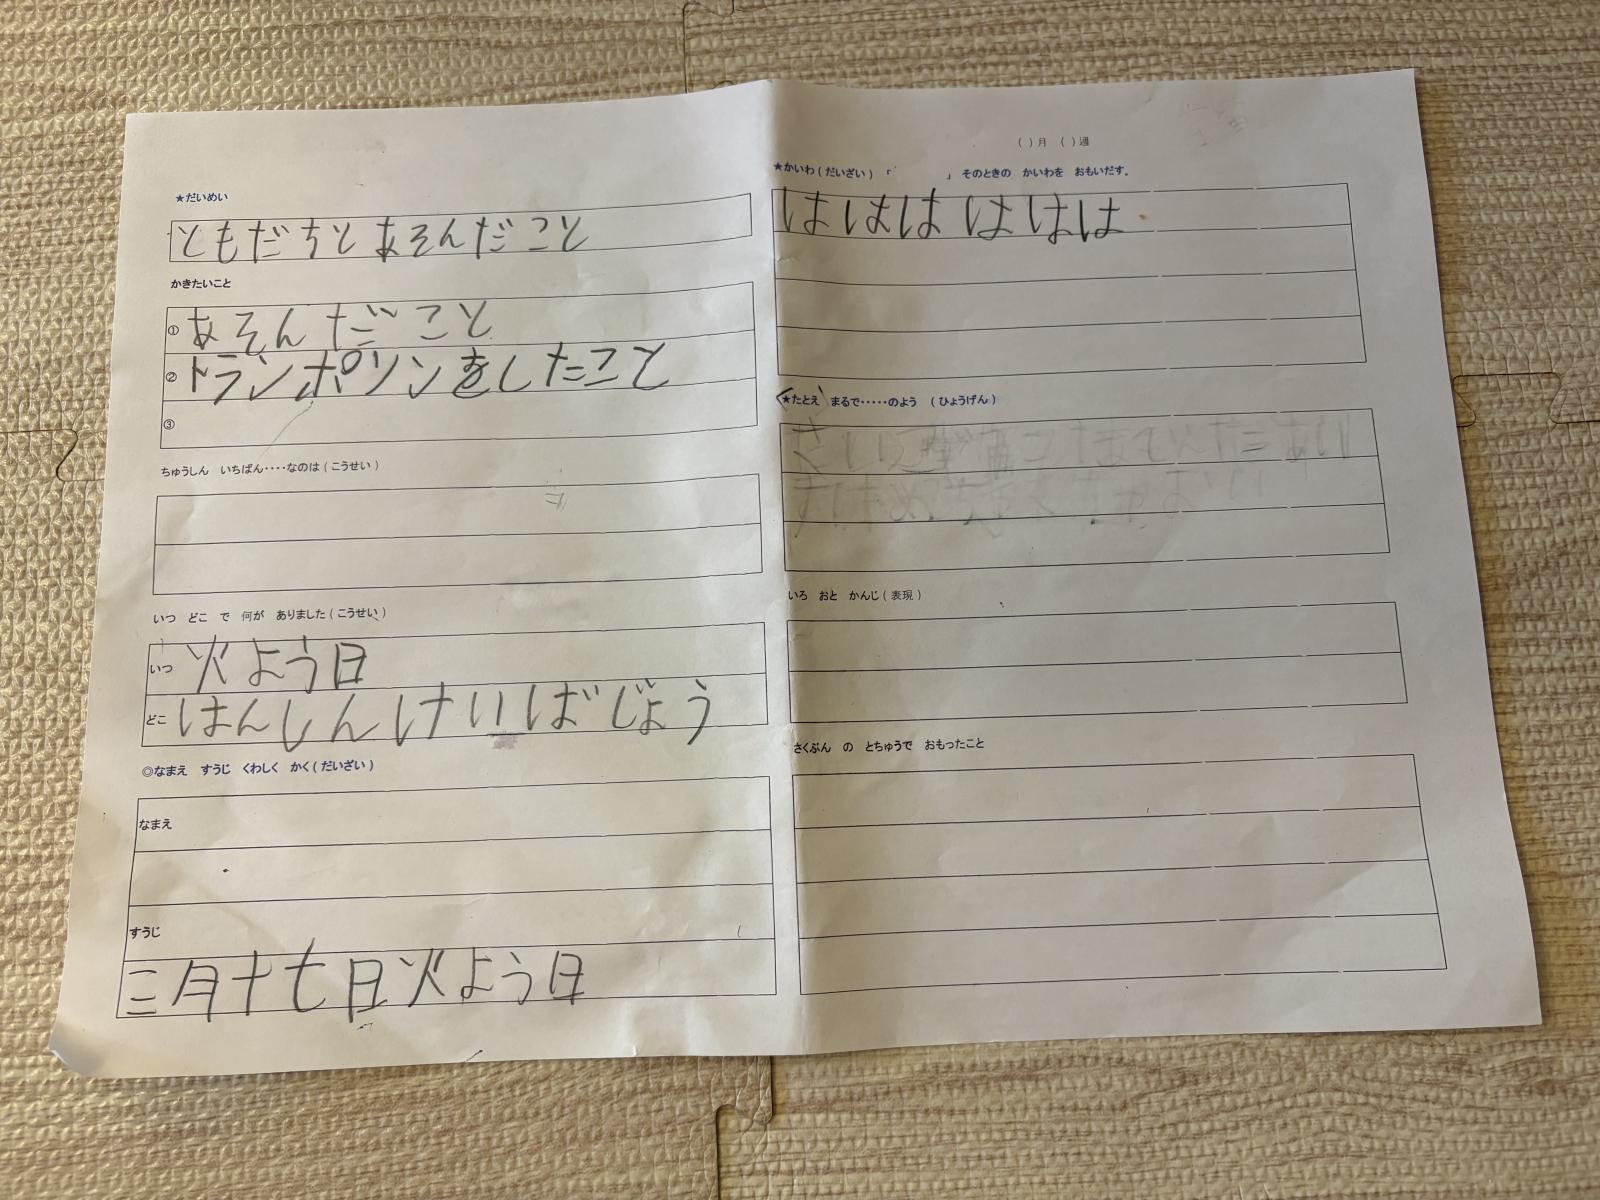 ★だいめい
ともだちとあそんだこと
かきたいこと
① あそんだこと
② トランポリンをしたこと
③
ちゅうしん いちばん・・・・なのは(こうせい)
いつ どこ で 何が ありました(こうせい)
いつ 火よう日
どこ はんしんけいばじょう
◎なまえ すうじ くわしく かく(だいざい)
なまえ
すうじ
三月十七日火よう日
( )月 ( )週
★かいわ(だいざい) 「 」 そのときの かいわを おもいだす.
はははははは
★たとえ まるで・・・・・のよう (ひょうげん)
いろ おと かんじ(表現)
さくぶん の とちゅうで おもったこと